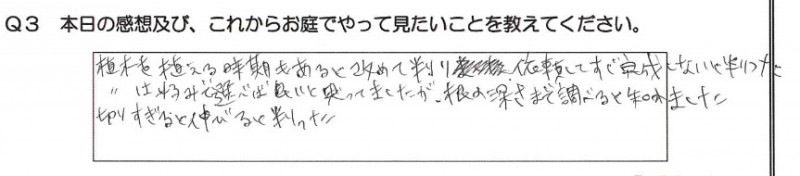 Q3 本日の感想及び、これからお庭でやって見たいことを教えてください。
植木を植える時期もあると改めて判り 依頼してすぐ完成しないと判った
〃 は好みで選べば良いと思ってましたが、根の深さまで調べると知りました
切りすぎると伸びると判った